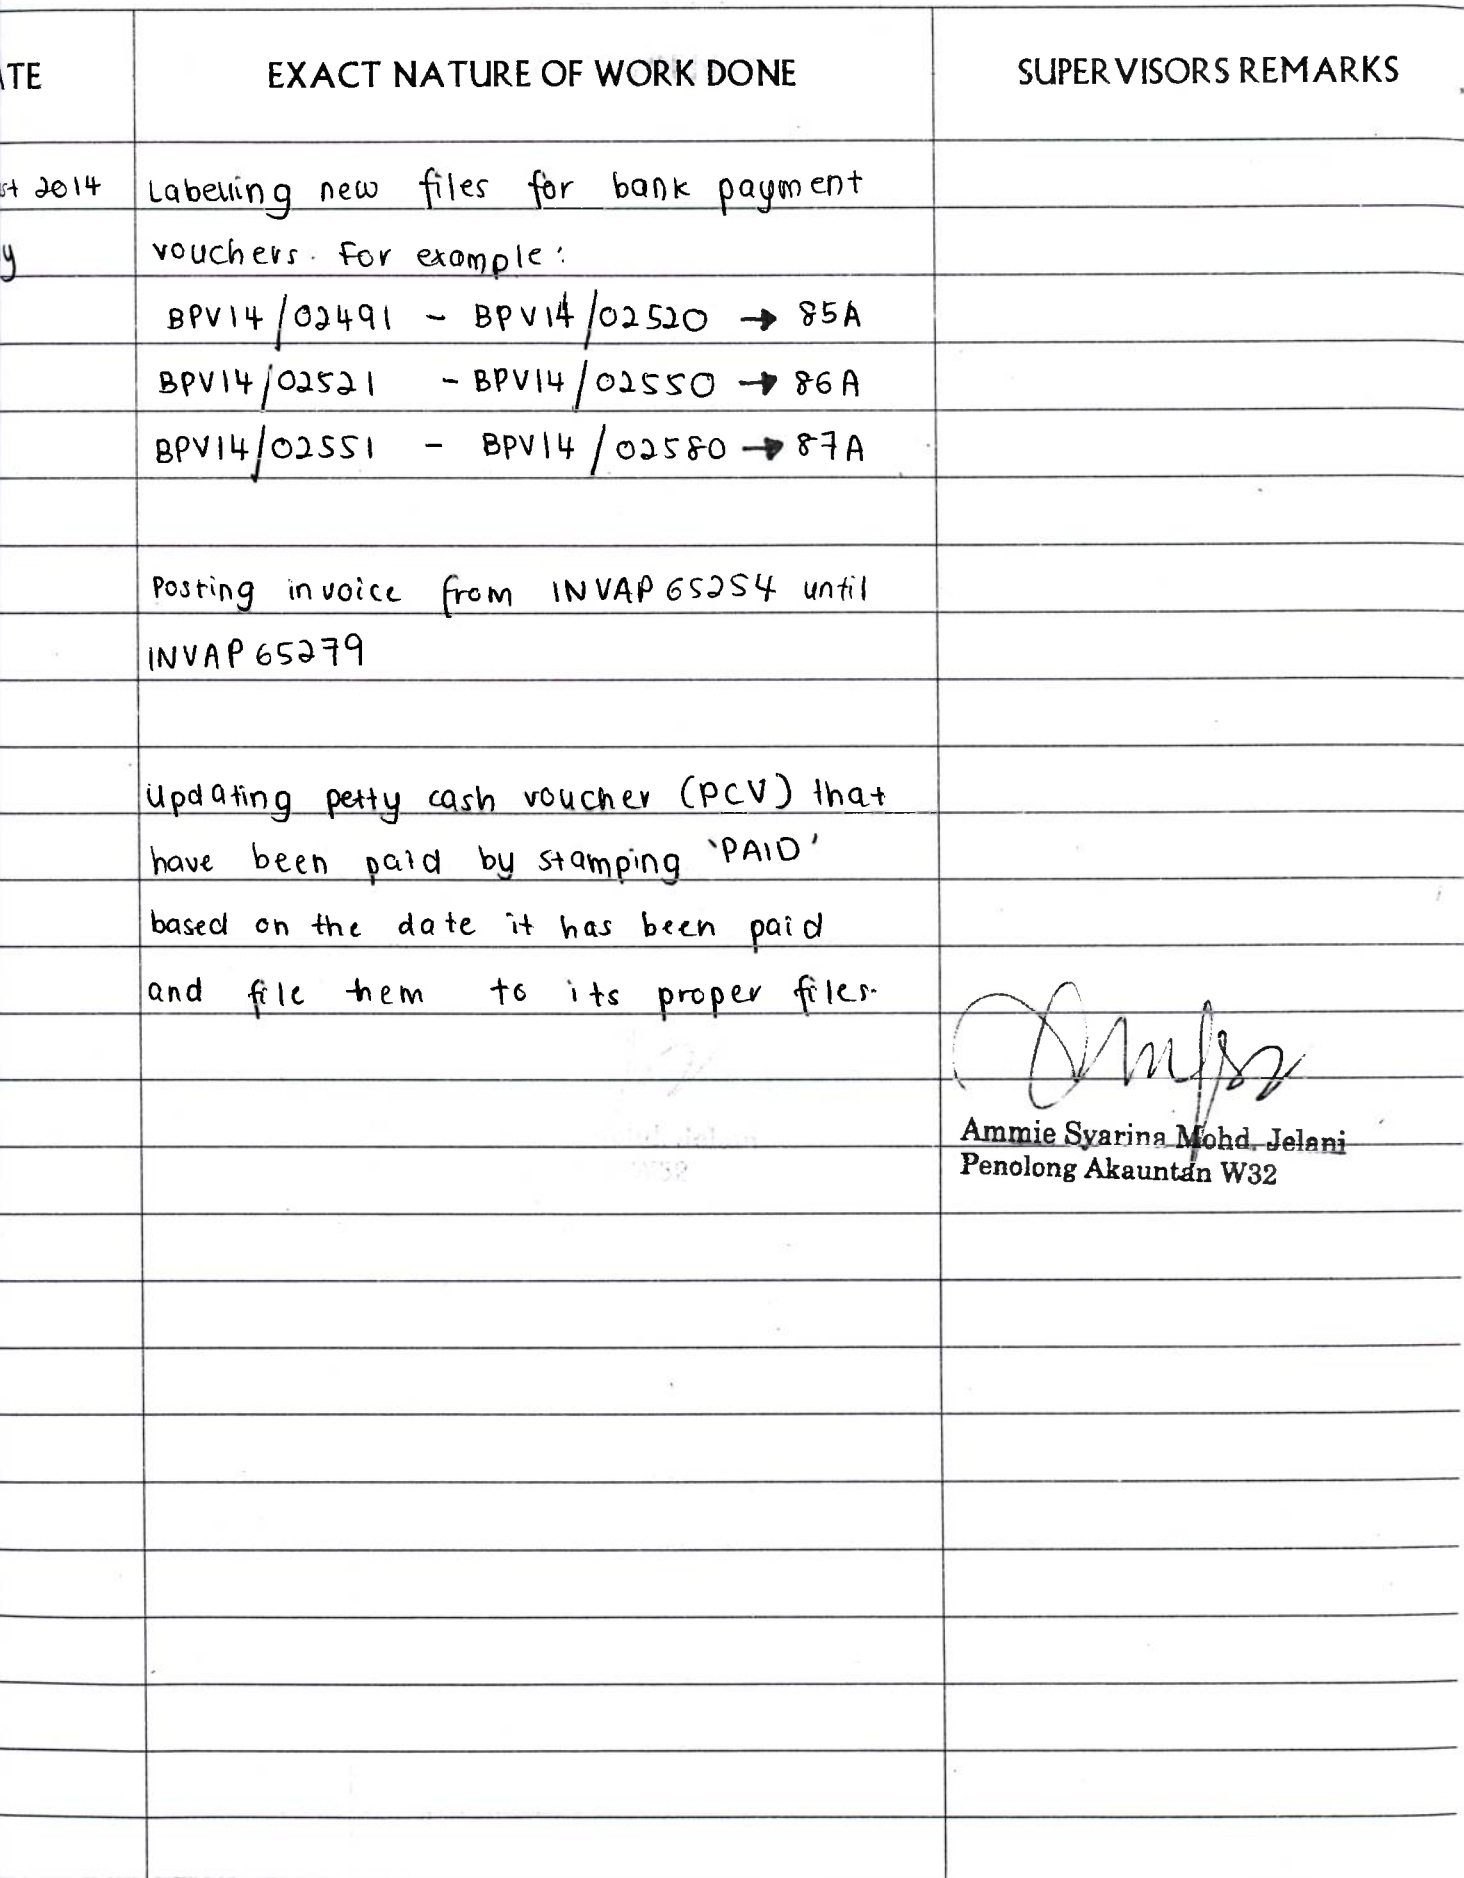 TE EXACT NATURE OF WORK DONE SUPERVISORS REMARKS
st 2014 Labelling new files for bank payment
y vouchers. For example:
BPV14/02491 - BPV14/02520 → 85A
BPV14/02521 - BPV14/02550 → 86A
BPV14/02551 - BPV14/02580 → 87A
Posting invoice from INVAP 65254 until
INVAP 65279
Updating petty cash voucher (PCV) that
have been paid by stamping 'PAID'
based on the date it has been paid
and file them to its proper files.
Ammie Syarina Mohd. Jelani
Penolong Akauntan W32